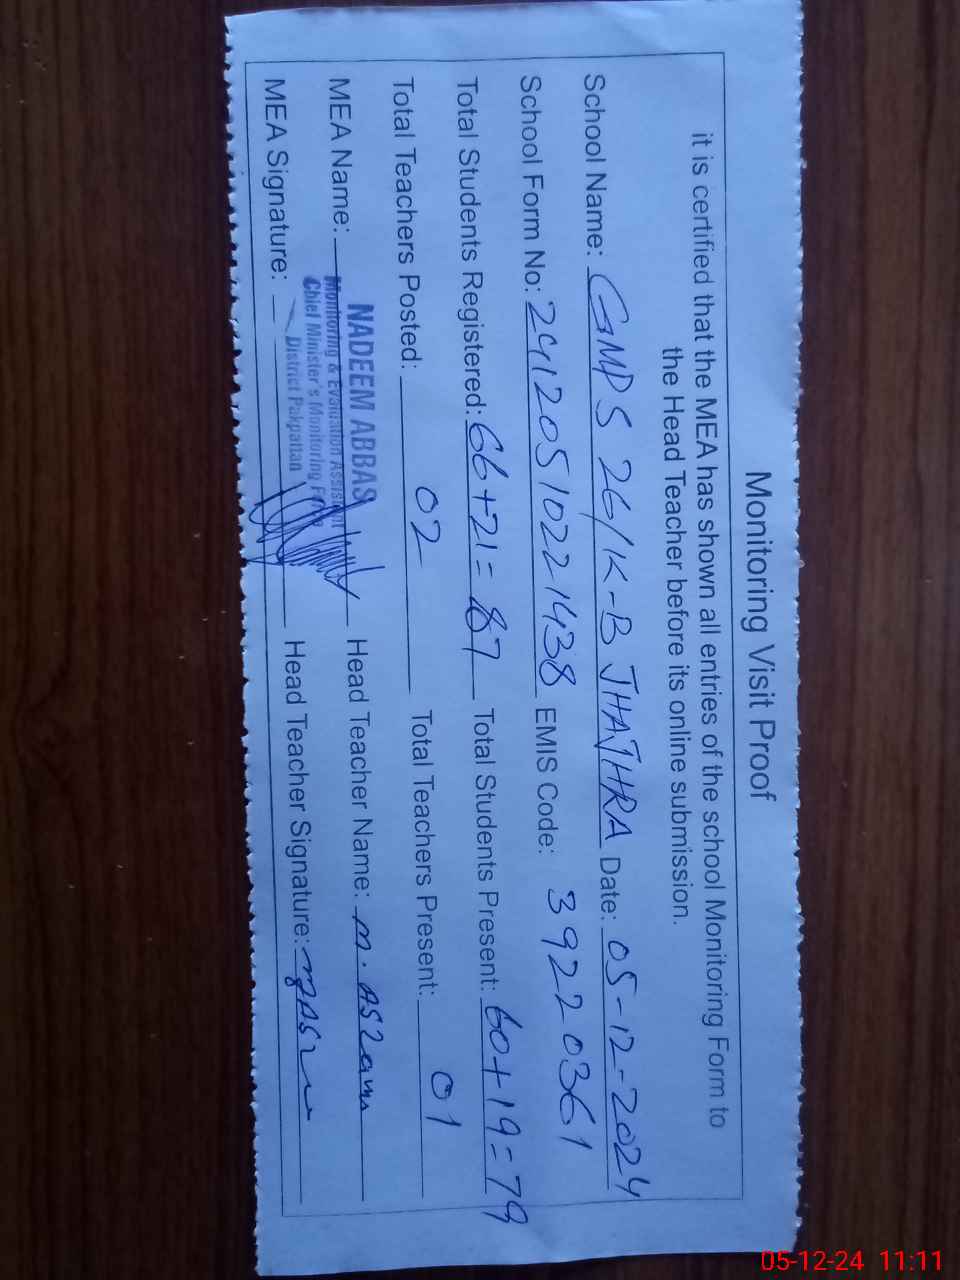 Monitoring Visit Proof
it is certified that the MEA has shown all entries of the school Monitoring Form to
the Head Teacher before its online submission.
School Name: GMPS 26/K-B JHAJHRA Date: 05-12-2024
School Form No: 24120510221438 EMIS Code: 39220361
Total Students Registered: 66+21= 87 Total Students Present: 60+19=79
Total Teachers Posted: 02 Total Teachers Present: 01
MEA Name: Head Teacher Name: M. Aslam
NADEEM ABBAS
Monitoring & Evaluation Assistant
Chief Minister's Monitoring Force
District Pakpattan
MEA Signature: Head Teacher Signature:
05-12-24 11:11